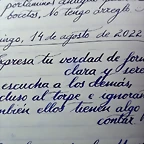 portaminas antiguo
bocetos, No tengo arreglo
ingo, 14 de agosto de 2022
xpresa tu verdad de for
clara y sere
escucha a los demás,
cluso al torpe e ignoran
mbién ellos tienen algo
contar